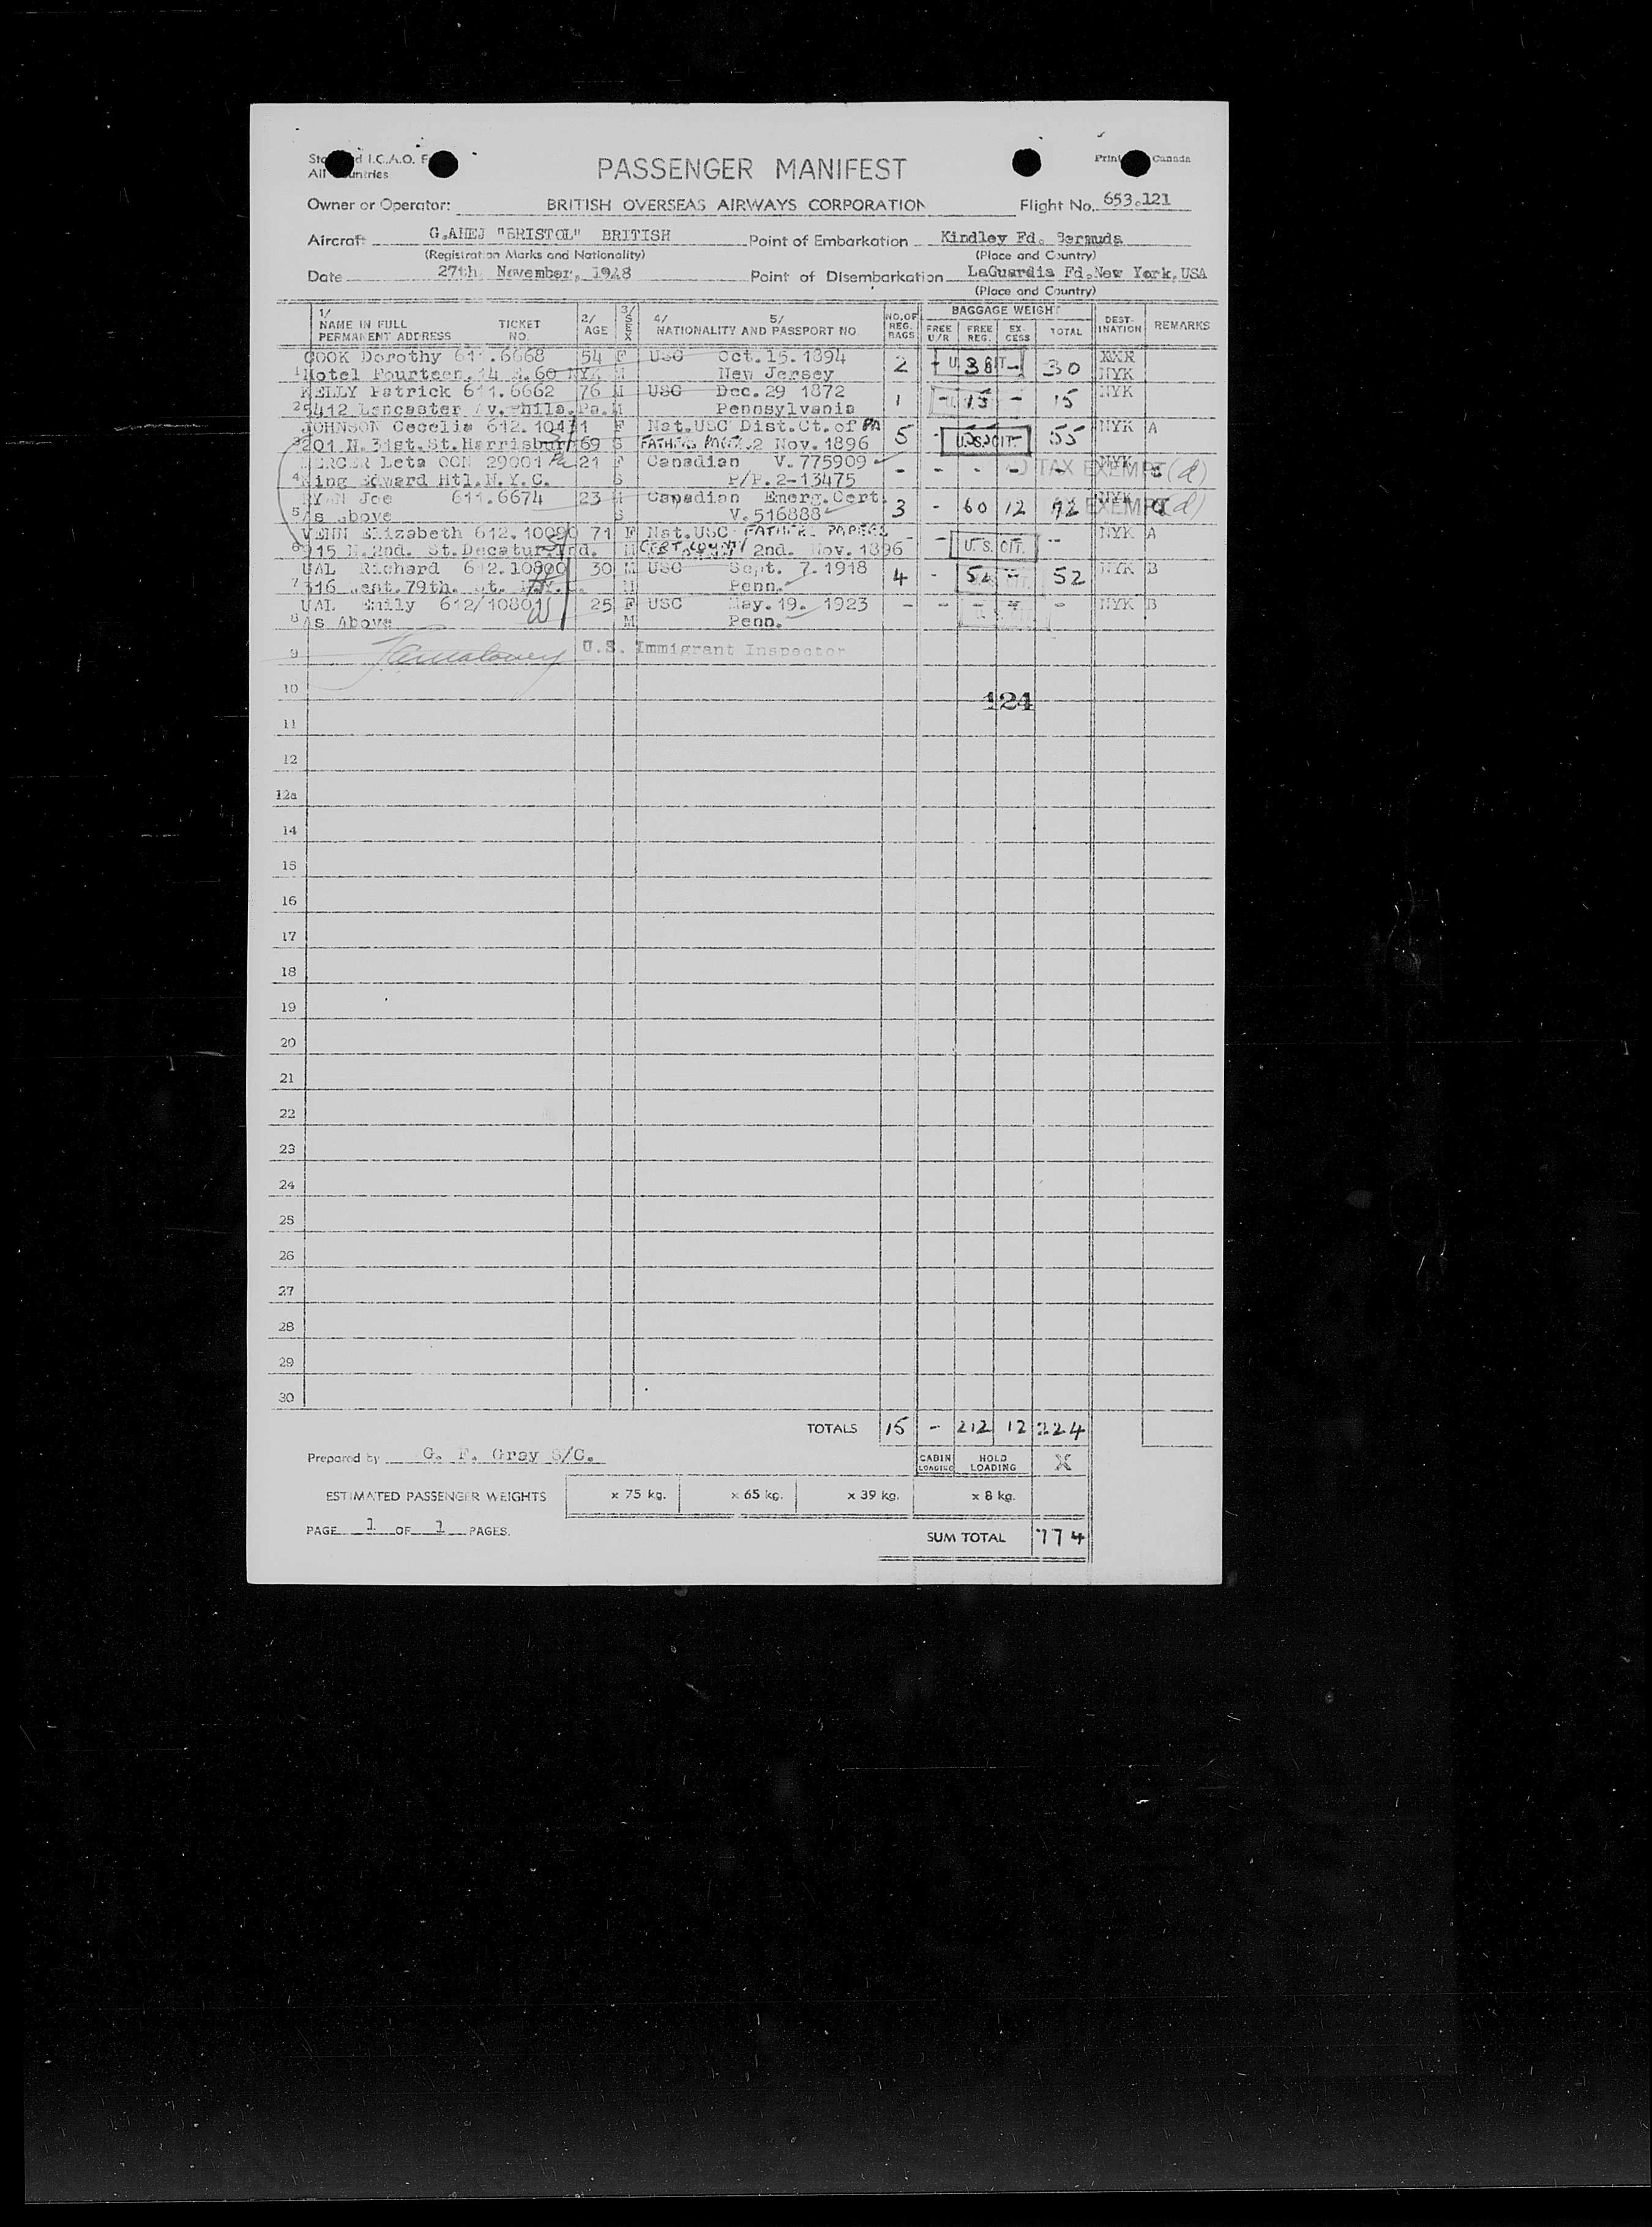 PASSENGER MANIFEST
All Countries
Canada
Owner or Operator: BRITISH OVERSEAS AIRWAYS CORPORATION Flight No. 653.121
Aircraft G.AHEJ "BRISTOL" BRITISH Point of Embarkation Kindley Fd. Bermuda
(Registration Marks and Nationality) (Place and Country)
Date 27th. November, 1948 Point of Disembarkation LaGuardia Fd.New York.USA
(Place and Country)
1/ NAME IN FULL PERMANENT ADDRESS TICKET NO. 2/ AGE 3/ SEX 4/ 5/ NATIONALITY AND PASSPORT NO. NO. OF REG. BAGS BAGGAGE WEIGHT FREE U/R FREE REG. EX- CESS TOTAL DEST- INATION REMARKS
COOK Dorothy 611.6668 54 F USC Oct.15.1894 2 - U.S. CIT. - 30 XXX
1 Hotel Fourteen.14 E.60 NYK New Jersey NYK
KELLY Patrick 611.6662 76 M USC Dec.29 1872 1 - 15 - 15 NYK
2 5412 Lancaster Av.Phila.Pa.M Pennsylvania
JOHNSON Cecelia 612.10471 F Nat.USC Dist.Ct.of PA 5 - U.S. CIT. - 55 NYK A
3 201 N.31st.St.Harrisburg 69 S FATHERS 2 Nov.1896
MERCER Leta OCN 29001 Pa 21 F Canadian V.775909 - - - - - TAX EXEMPT (d) NYK
4 King Edward Htl.N.Y.C. S P/P.2-13475
RYAN Joe 611.6674 23 M Canadian Emerg.Cert. 3 - 60 12 72 EXEMPT (d) NYK
5 As above S V.516888
VENN Elizabeth 612.10090 71 F Nat.USC FATHERS PAPERS - - U.S. CIT. - NYK A
6 915 N.2nd. St.Decatur.Ind. M CERT. COUNTY 2nd. Nov.1896
UAL Richard 612.10800 30 M USC Sept. 7.1918 4 - 52 - 52 NYK B
7 316 East.79th. St. N.Y.C. M Penn.
UAL Emily 612/10801 25 F USC May.19. 1923 - - - - - NYK B
8 As Above M Penn.
9 U.S. Immigrant Inspector
10 124
11
12
12a
14
15
16
17
18
19
20
21
22
23
24
25
26
27
28
29
30
TOTALS 15 - 212 12 224
Prepared by G. F. Gray S/C. CABIN LOADING HOLD LOADING X
ESTIMATED PASSENGER WEIGHTS x 75 kg. x 65 kg. x 39 kg. x 8 kg.
PAGE 1 OF 1 PAGES.
SUM TOTAL 774